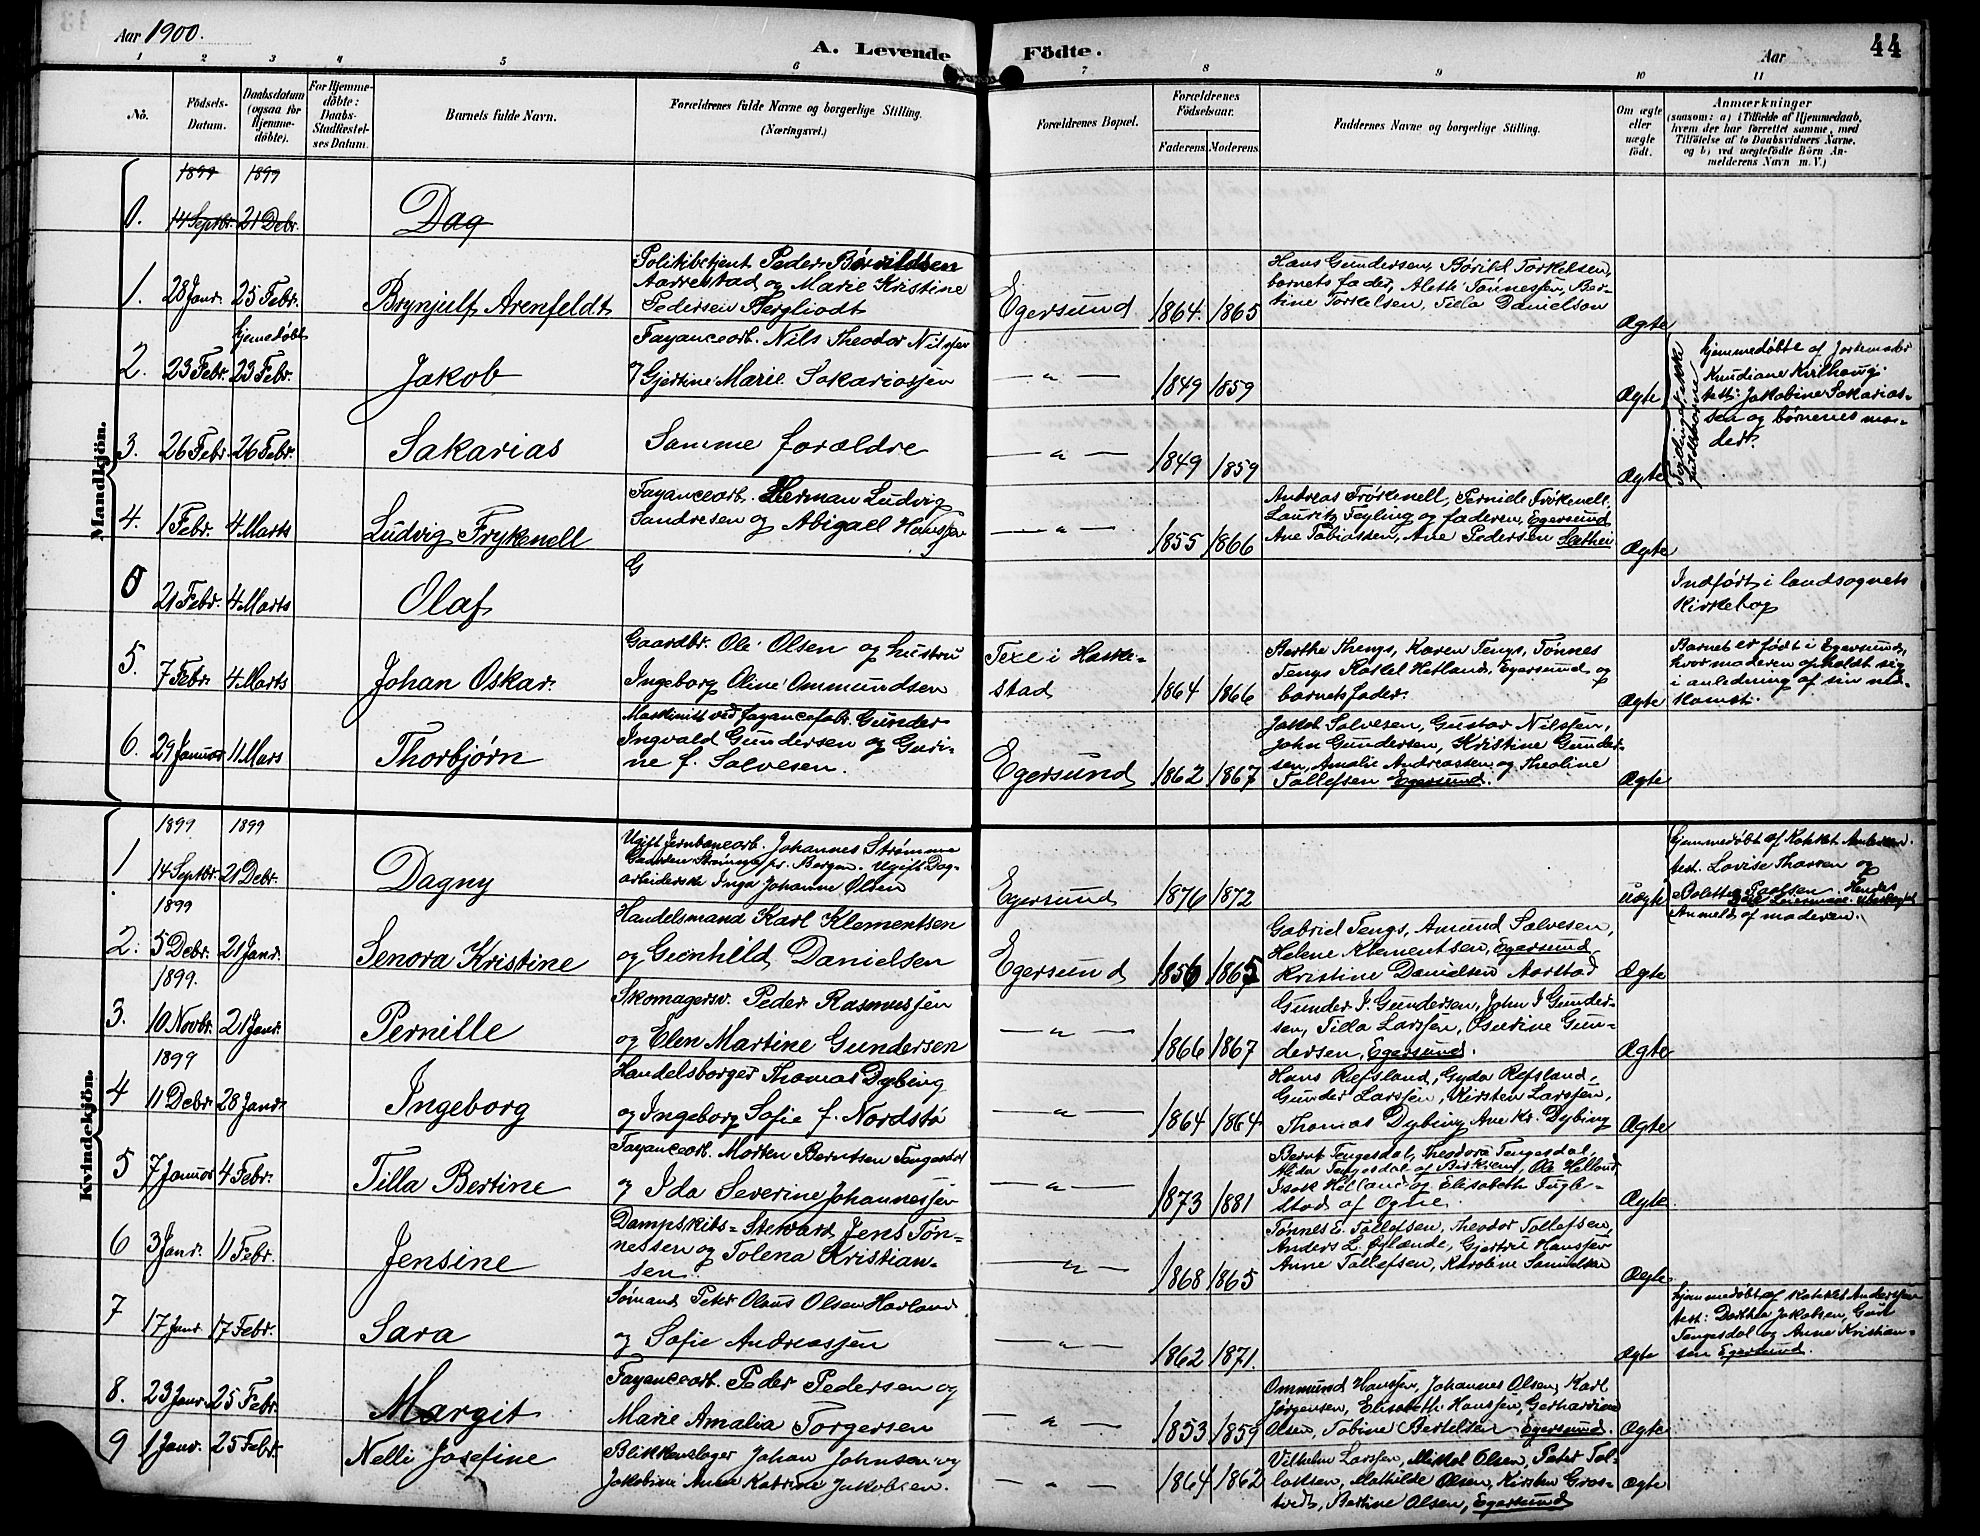 Aar 1900.
A. Levende Födte.
Aar
44
1 2 3 4 5 6 7 8 9 10 11
No.
Födsels-
Datum.
Daabsdatum
(ogsaa for
Hjemme-
döbte).
For Hjemme-
döbte:
Daabs-
Stadfæstel-
ses Datum.
Barnets fulde Navn.
Forældrenes fulde Navne og borgerlige Stilling.
(Næringsvei.)
Forældrenes Bopæl.
Forældrenes
Födselsaar.
Faderens. Moderens.
Faddernes Navne og borgerlige Stilling.
Om ægte
eller
uægte
födt.
Anmærkninger
(saasom: a) i Tilfælde af Hjemmedaab,
hvem der har forrettet samme, med
Tilföielse af to Daabsvidners Navne,
og b) ved uægtefödte Börn An-
melderens Navn m. V.)
Mandkjön.
1899 1899
0. 14 Septbr. 21 Debr. Dag
1. 28 Janr. 25 Febr. Brynjulf Arenfeldt
Politibetjent Peder Børildsen
Aarrestad og Marie Kristine
Pedersen Bergliodt
Egersund 1864. 1865
Hans Gundersen, Børild Torkelsen,
barnets fader, Alette Tønnessen, Ber-
tine Torkelsen, Tilla Danielson
Ægte
2. 23 Febr. hjemmedøbt 23 Febr. Jakob
Fayancearb. Nils Theodor Nilssen
og Gjertine Marie Sakariassen
— " — 1849 1859 Ægte
Tvillinger
hjemmedøbte af Jordemoder
Knudiane Kvilhaug.
test: Jakobine Sakarias-
sen og børnenes mo-
der.
3. 26 Febr. 26 Febr. Sakarias
Samme forældre
— " — 1849 1859 Ægte
4. 1 Febr. 4 Marts Ludvig Frykenell
Fayancearb. Herman Ludvig
Sandresen og Abigael Hanssen
— " — 1855 1866
Andreas Frökenell, Pernide Frökenell,
Lauritz Feyling og faderen, Egersund
Ane Tobiassen, Ane Pedersen Sæther
Ægte
0 21 Febr. 4 Marts Olaf
G
Indført i landsognets
kirkebog
5. 7 Febr. 4 Marts Johan Oskar.
Gaardbr. Ole Olsen og hustru
Ingeborg Oline Ommundsen
Texe i Haske-
stad 1864 1866
Berthe Thengs, Karen Tengs, Tønnes
Tengs Kastel Hetland, Egersund og
barnets fader.
Ægte
Barnet er født i Egersund,
hvor moderen opholdt sig
i anledning af sin ned-
komst.
6. 29 Januar 11 Mars Thorbjørn
Maskinist ved fayancefabr. Gunder
Ingvald Gundersen og Guri-
ne f. Salvesen.
Egersund 1862 1867
Jakob Salvesen, Gustav Nilssen,
John Gundersen, Kristine Gunder-
sen, Amalie Andreassen og Theoline
Tollefsen Egersund.
Ægte
Kvindekjön.
1899 1899
1. 14 Septbr. 21 Debr. Dagny
Ugift Jernbanearb. Johannes Strømme
Gaarden Strømme pr. Bergen. Ugift Dag-
arbeiderske Inga Johanne Olsen
Egersund 1876 1872 uægte
hjemmedøbt af Kokket Andersen.
test. Lovise Thorsen og
Bolette Paulsen. Hendes
Anmeld af moderen.
1899
2. 5 Debr. 21 Janr. Senora Kristine
Handelsmand Karl Klementsen
og Gunhild Danielsen
Egersund 1856 1865
Gabriel Tengs, Amund Salvesen,
Helene Klementsen, Egersund
Kristine Danielsen Aarstad
Ægte
1899.
3. 10 Novbr. 21 Janr. Pernille
Skomagersv. Peder Rasmussen
og Elen Martine Gundersen
— " — 1866 1867
Gunder J. Gundersen, John J Gunder-
sen, Tilla Larssen, Severine Gun-
dersen, Egersund.
Ægte
1899
4 11 Debr. 28 Janr. Ingeborg
Handelsborger Thomas Dybing
og Ingeborg Sofie f. Nordstø
— " — 1864 1864
Hans Refsland, Gyda Refsland,
Gunder Larssen, Kirsten Larssen,
Thomas Dybing, Ane Kr. Dybing
Ægte
5 7 Januar 4 Febr. Tilla Bertine
Fayancearb. Morten Berntsen Tengesdal
og Ida Severine Johannessen
— " — 1873 1881
Bernt Tengesdal, Theodora Tengesdal,
Alida Tengesdal af Birkrem, Ole Helland
Isak Helland og Elisabeth Fugle-
stad af Ogne.
Ægte
6 3 Janr. 11 Febr. Jensine
Dampskibs-Steward Jens Tøn-
nessen og Tolena Kristian-
sen.
— " — 1868 1865
Tønnes E. Tollefsen, Theodor Tollefsen,
Anders L. Eglænde, Gjertrud Hanssen
Anne Tollefsen, Karoline Samuelsen
Ægte
7 17 Janr 17 Febr. Sara
Sømand Peter Olaus Olsen Havland
og Sofie Andreassen
— " — 1862 1871. Ægte
hjemmedøbt af Kokket Anderssen
test: Dorthea Jakobsen, Guri
Tengesdal og Anne Kristian-
sen Egersund.
8. 23 Janr. 25 Febr. Margit
Fayancearb. Peder Pedersen og
Marie Amalia Torgersen
— " — 1853 1859
Ommund Hanssen, Johannes Olsen, Karl
Jørgensen, Elisabeth Hanssen, Gerhardine
Olsen, Tobine Bertelsen Egersund.
Ægte
9 1 Janr. 25 Febr. Nelli Josefine
Blikkenslager Johan Johnsen og
Jakobine Anna Katrine Jakobsen.
— " — 1864 1862
Vilhelm Larssen, Mikkel Olsen, Peter Tol-
laksen, Mathilde Olsen, Kirsten Gros-
tveds, Bertine Olsen, Egersund
Ægte